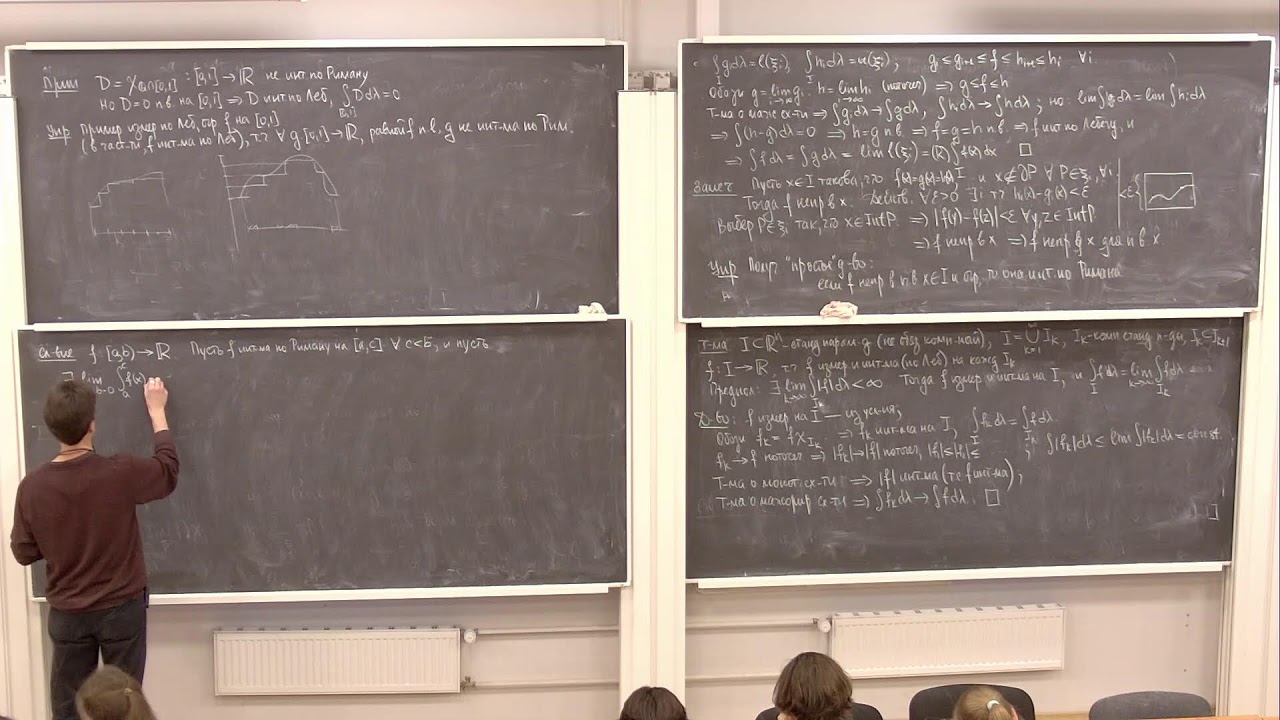 Прим D = χ_{ℚ∩[0,1]} : [0,1] → ℝ не инт по Риману
Но D=0 п в на [0,1] ⇒ D инт по Леб, ∫_{[0,1]} D dλ = 0
Упр Пример измер по Леб, огр f на [0,1]
(в част-ти, f инт-ма по Леб), т.ч. ∀ g: [0,1] → ℝ, равной f п.в, g не инт-ма по Рим.
Сл-вие f: [a,b) → ℝ Пусть f инт-ма по Риману на [a,c] ∀ c<b, и пусть
∃ lim ∫ f(x)
∫_I g_i dλ = ℓ(ξ_i), ∫_I h_i dλ = u(ξ_i); g_i ≤ g_{i+1} ≤ f ≤ h_{i+1} ≤ h_i ∀i
Обозн g = lim_{i→∞} g_i, h = lim_{i→∞} h_i (поточеч) ⇒ g ≤ f ≤ h
Т-ма о маж сх-ти ⇒ ∫g_i dλ → ∫g dλ, ∫h_i dλ → ∫h dλ; но: lim ∫g_i dλ = lim ∫h_i dλ
⇒ ∫(h-g)dλ = 0 ⇒ h=g п в ⇒ f=g=h п в. ⇒ f инт по Лебегу, и
⇒ ∫f dλ = ∫g dλ = lim ℓ(ξ_i) = (R)∫_I f(x)dx □
Замеч Пусть x∈I такова, что f(x)=g(x)=h(x) и x∉∂P ∀ P∈ξ_i, ∀i
Тогда f непр в x. Действ. ∀ε>0 ∃i т.ч. h_i(x)-g_i(x)<ε
<ε
Выбер P∈ξ_i так, что x∈Int P. ⇒ |f(y)-f(z)|<ε ∀y,z∈Int P
⇒ f непр в x ⇒ f непр в x для п в x
Упр Получ "простое" д-во:
если f непр в п в x∈I и огр, то она инт-ма по Риману
Т-ма I⊂ℝⁿ - станд парал-д (не обяз комп-ный), I = ⋃_{k=1}^∞ I_k, I_k - комп станд п-ды, I_k⊂I_{k+1}
f: I → ℝ, т.ч. f измер и инт-ма (по Леб) на кажд I_k
Предпол: ∃ lim_{k→∞} ∫_{I_k} |f|dλ < ∞ Тогда f измер и инт-ма на I, и ∫_I f dλ = lim_{k→∞} ∫_{I_k} f dλ
Д-во: f измер на I — из усл-ия;
Обозн f_k = f χ_{I_k} ⇒ f_k инт-ма на I, ∫_I f_k dλ = ∫_{I_k} f dλ
f_k → f поточеч ⇒ |f_k| → |f| поточеч, |f_1| ≤ |f_2| ≤ ; ∫|f_k|dλ ≤ lim ∫|f_k|dλ = const.
Т-ма о монот. сх-ти ⇒ |f| инт-ма (т.е f инт-ма);
Т-ма о мажорир сх-ти ⇒ ∫f_k dλ → ∫f dλ. □